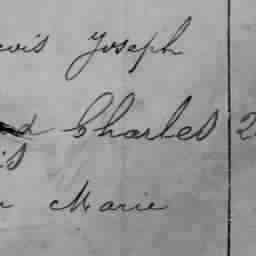 Joseph
Charles 2
is
Marie